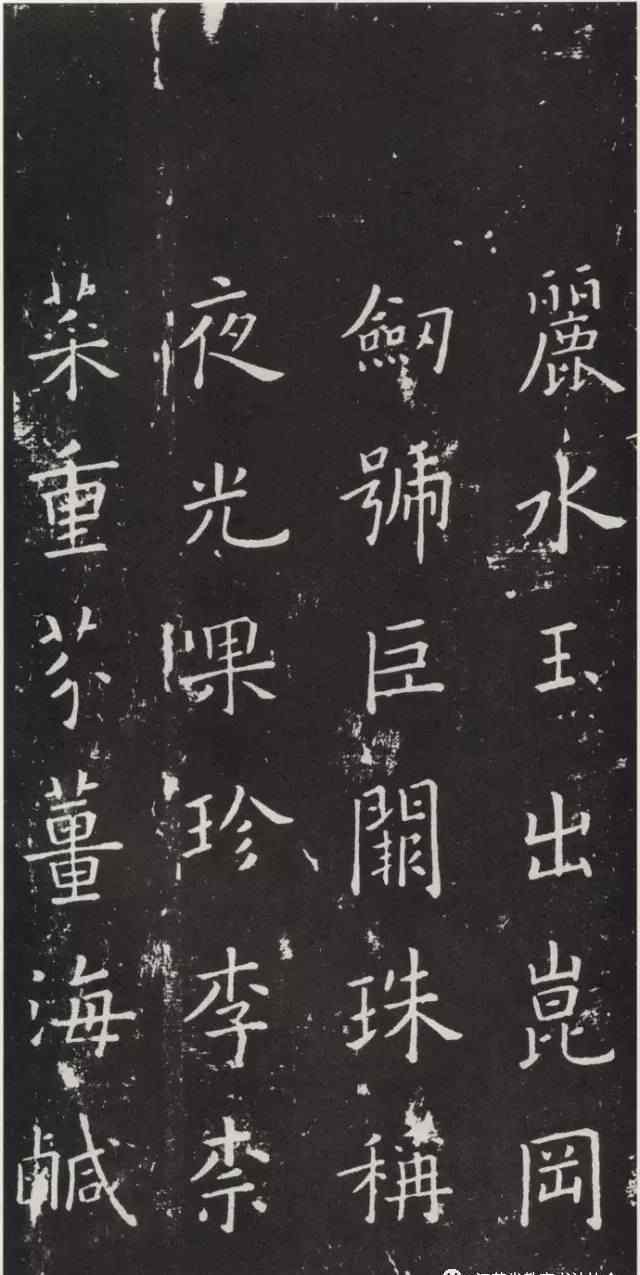 麗水玉出崑岡
劒號巨闕珠稱
夜光果珍李柰
菜重芥薑海鹹